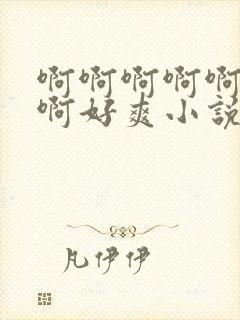 啊啊啊啊啊
啊好爽小説
凡伊伊